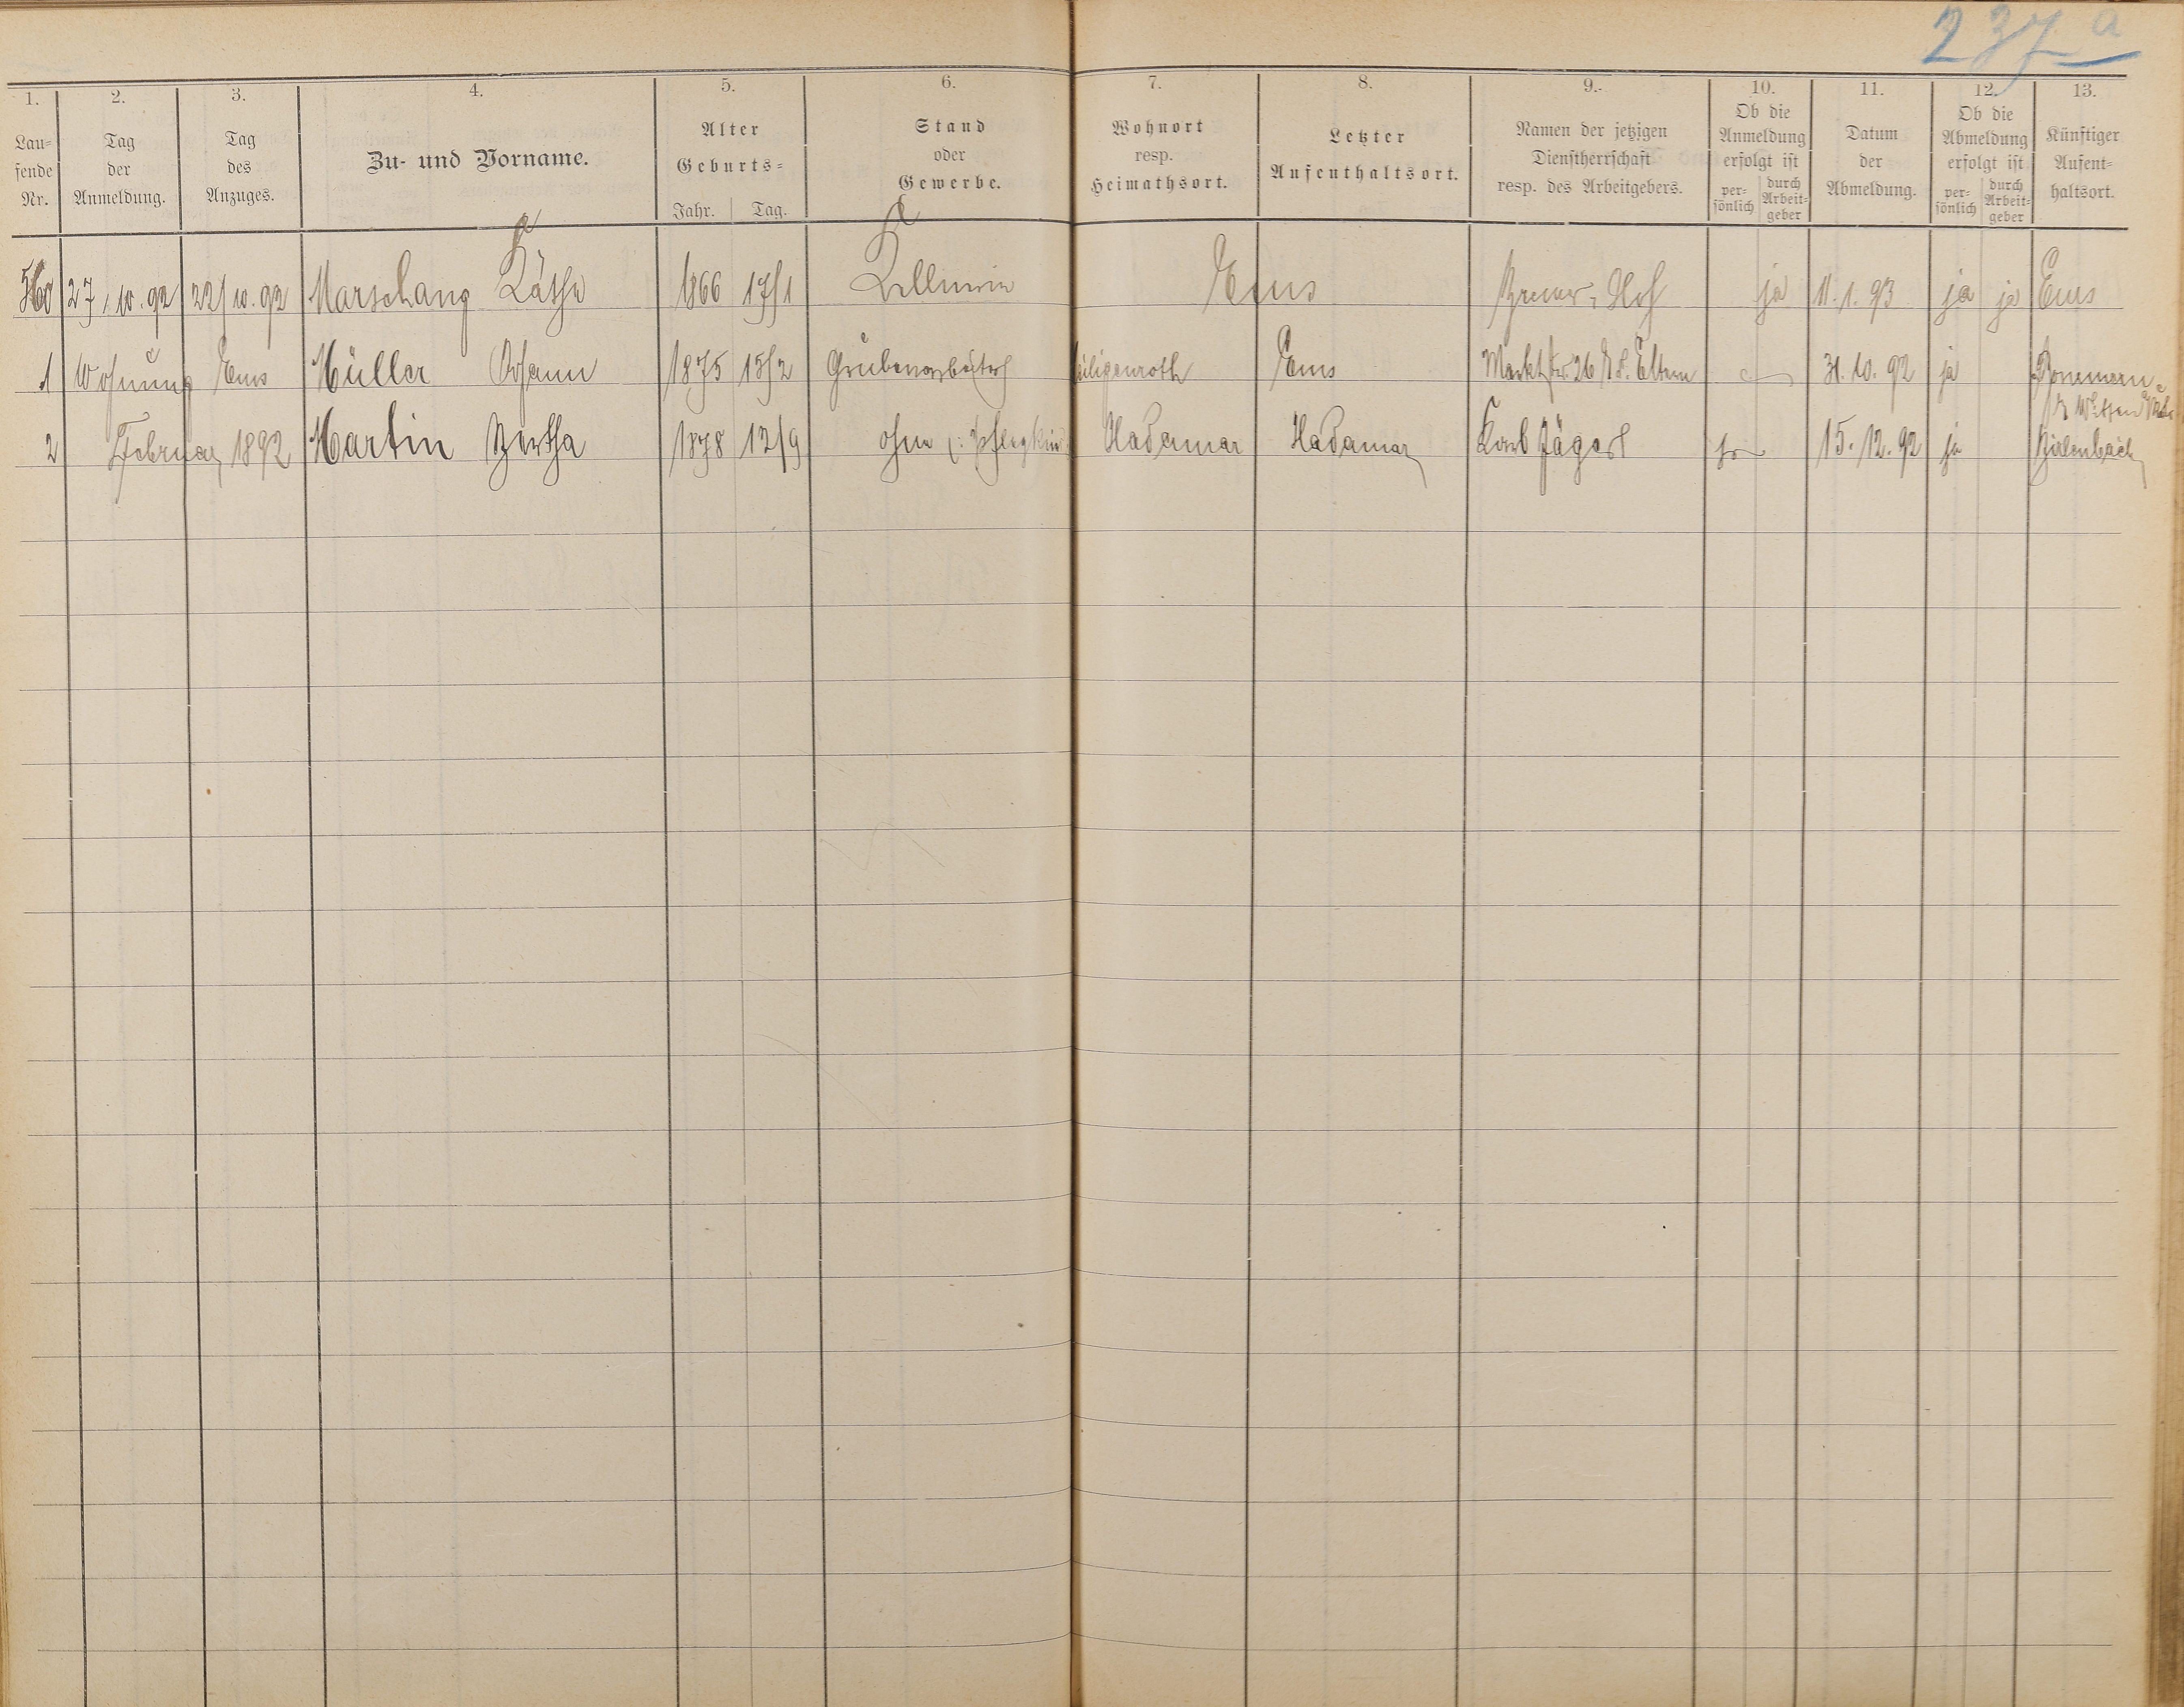 237 a
1. 2. 3. 4. 5. 6. 7. 8. 9. 10. 11. 12. 13.
Lau-
fende
Nr.
Tag
der
Anmeldung.
Tag
des
Anzuges.
Zu- und Vorname.
Alter
Geburts-
Jahr. Tag.
Stand
oder
Gewerbe.
Wohnort
resp.
Heimathsort.
Letzter
Aufenthaltsort.
Namen der jetzigen
Dienstherrschaft
resp. des Arbeitgebers.
Ob die
Anmeldung
erfolgt ist
per-
sönlich
durch
Arbeit-
geber
Datum
der
Abmeldung.
Ob die
Abmeldung
erfolgt ist
per-
sönlich
durch
Arbeit-
geber
Künftiger
Aufent-
haltsort.
27/10.92 22/10.92 Marschang Käthe 1866 17/1 Kellnerin Ems Hof ja 11.1.93 ja ja Ems
1 Wohnung Ems Müller Johann 1875 15/2 Grubenarbeiter Heiligenroth Ems Marktstr. 26 Eltern 31.10.92 ja
2 Februar 1892 Martin Bertha 1878 12/9 ohne (: Pflegkind Hadamar Hadamar Jäger 15.12.92 ja Birlenbach